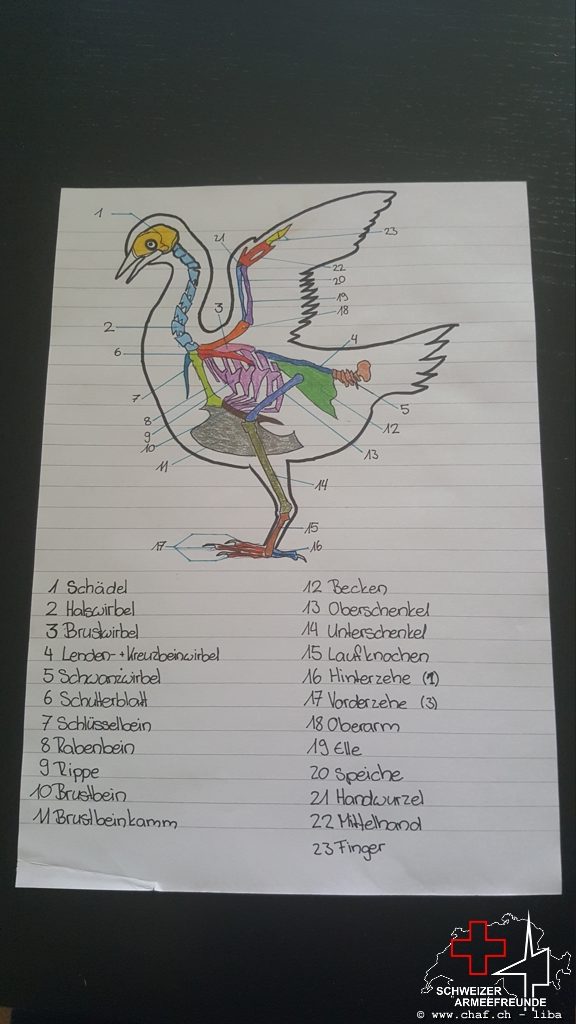 1
21
23
22
20
19
3
18
2
4
6
7
5
8
9
10
12
11
13
14
15
17
16
1 Schädel
2 Halswirbel
3 Brustwirbel
4 Lenden-+Kreuzbeinwirbel
5 Schwanzwirbel
6 Schulterblatt
7 Schlüsselbein
8 Rabenbein
9 Rippe
10 Brustbein
11 Brustbeinkamm
12 Becken
13 Oberschenkel
14 Unterschenkel
15 Laufknochen
16 Hinterzehe (1)
17 Vorderzehe (3)
18 Oberarm
19 Elle
20 Speiche
21 Handwurzel
22 Mittelhand
23 Finger
SCHWEIZER
ARMEEFREUNDE
© www.chaf.ch - liba